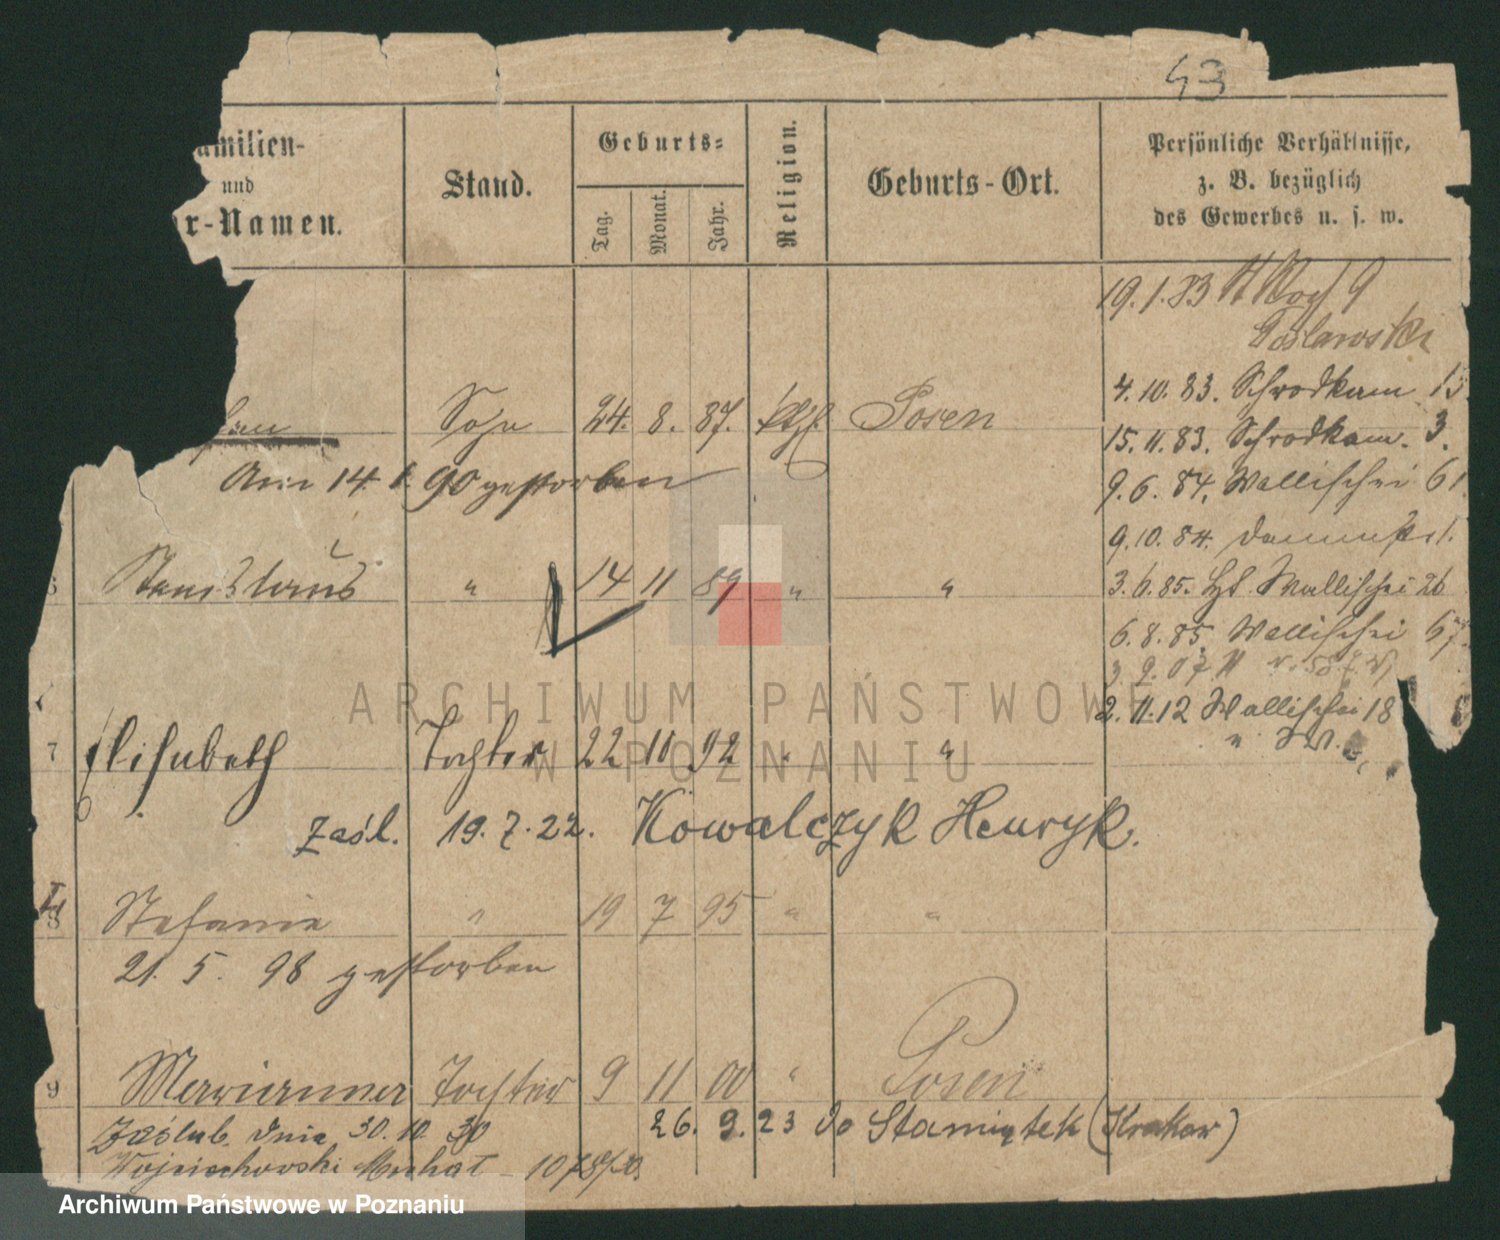 43
amilien-
und
r-Namen.
Stand.
Geburts-
Tag.
Monat.
Jahr.
Religion.
Geburts-Ort.
Persönliche Verhältnisse,
z. B. bezüglich
des Gewerbes u. s. w.
19.1.83
4.10.83. Schrodkam 13
15.11.83. Schrodkam. 3.
9.6.84. Wallischei 61
9.10.84.
3.6.85. Wallischei 26
6.8.85. Wallischei 67
2.11.12 Wallischei 18
Sohn 24. 8. 87. kth. Posen
Am 14. 1. 90 gestorben
Stanislaus " 14 11 89 " "
7 Elisabeth Tochter 22 10 92 " "
Zaśl. 19.7.22. Kowalczyk Henryk.
8 Stefanie " 19 7 95 " "
21. 5. 98 gestorben
9 Tochter 9 11 00 " Posen
Zaślub. dnia 30.10.30 26.9.23 do Staniątek (Krakow)
Wojciechowski Michał
ARCHIWUM PAŃSTWOWE
W POZNANIU
Archiwum Państwowe w Poznaniu